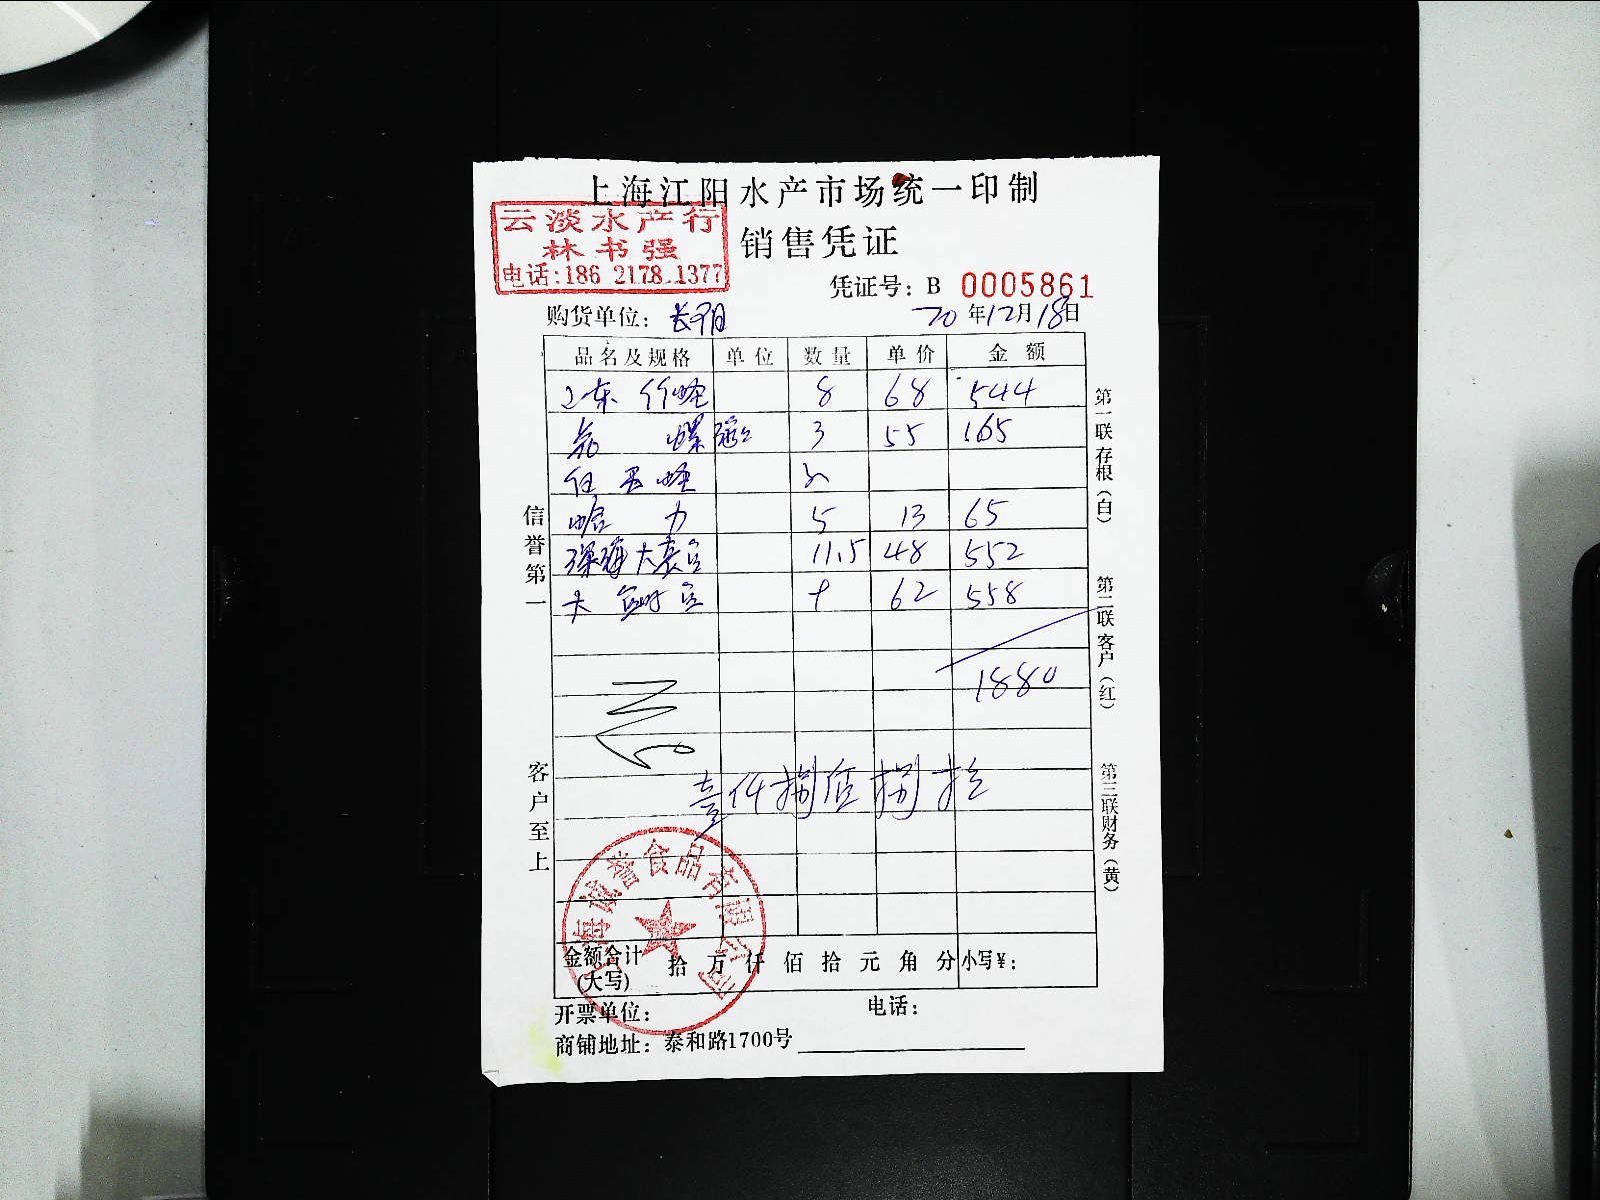 上海江阳水产市场统一印制
云淡水产行
林书强
电话:186 2178 1377
销售凭证
凭证号: B 0005861
购货单位: 长阳
20年12月18日
品名及规格 单位 数量 单价 金额
竹蛏 8 68 544
螺 3 55 165
蛏
蛤 5 13 65
深海大 11.5 48 552
大 9 62 558
1880
壹仟捌佰捌拾
信誉第一
客户至上
第一联存根(白)
第二联客户(红)
第三联财务(黄)
上海诚誉食品有限公司
金额合计(大写) 拾 万 仟 佰 拾 元 角 分 小写¥:
开票单位: 电话:
商铺地址: 泰和路1700号